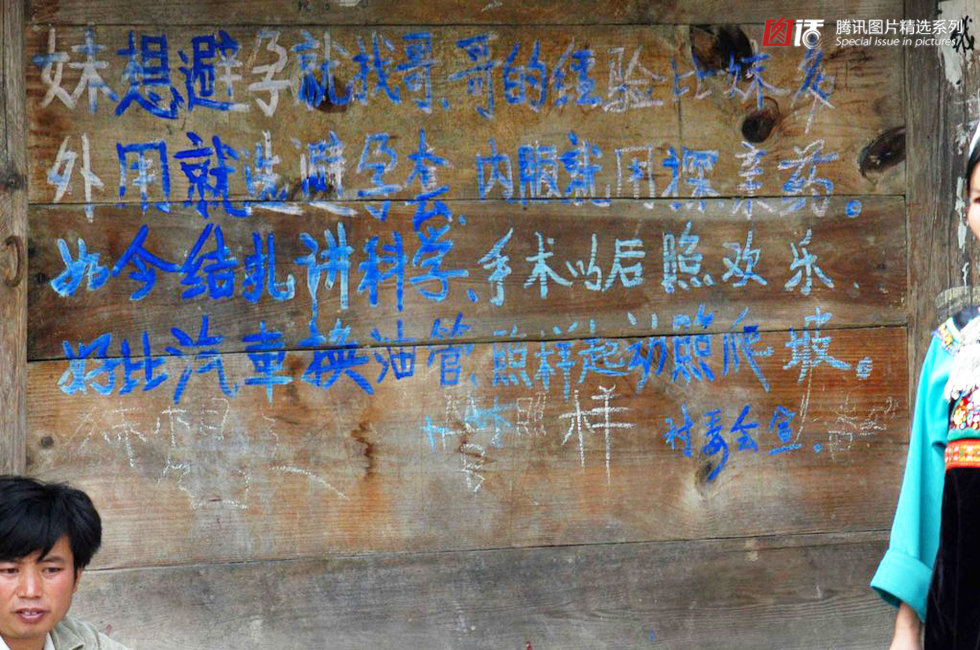 图话 腾讯图片精选系列
Special issue in pictures
妹想避孕就找哥、哥的经验比妹多
外用就选避孕套、内服就用探亲药。
如今结扎讲科学、手术以后照欢乐、
好比汽车换油管、照样起动照爬坡。
妹想 照样 村委会宣。